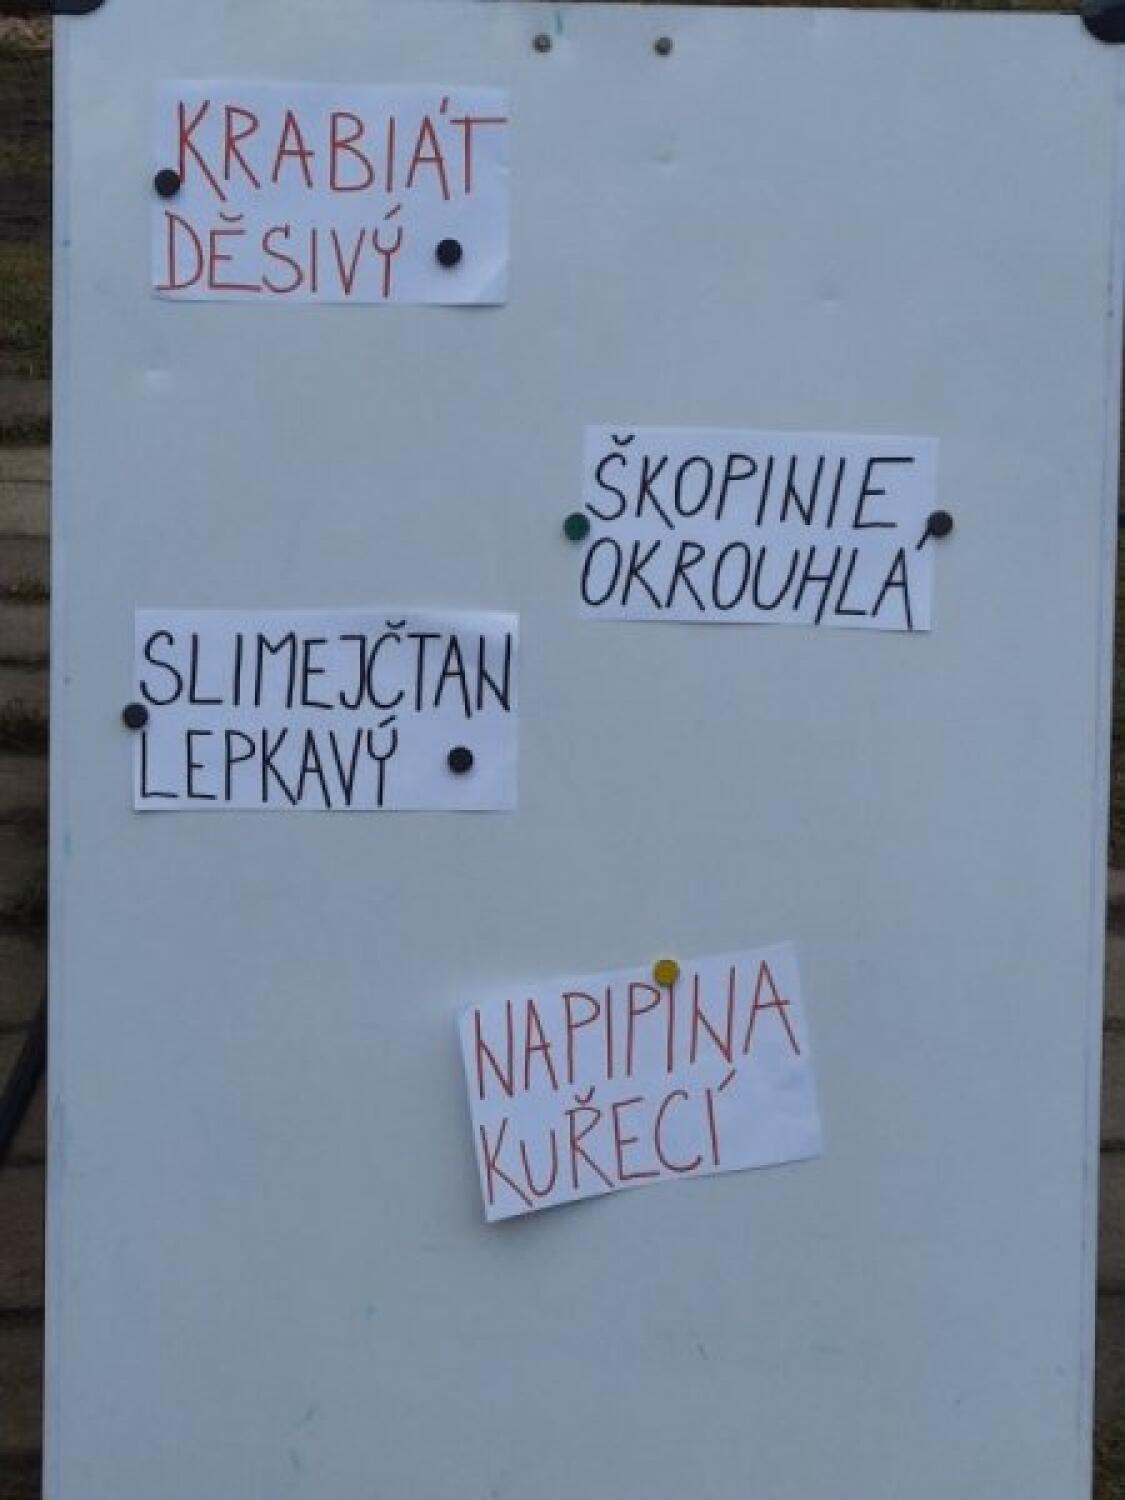 KRABIÁT
DĚSIVÝ
ŠKOPINIE
OKROUHLÁ
SLIMEJČTAN
LEPKAVÝ
NAPIPINA
KUŘECÍ